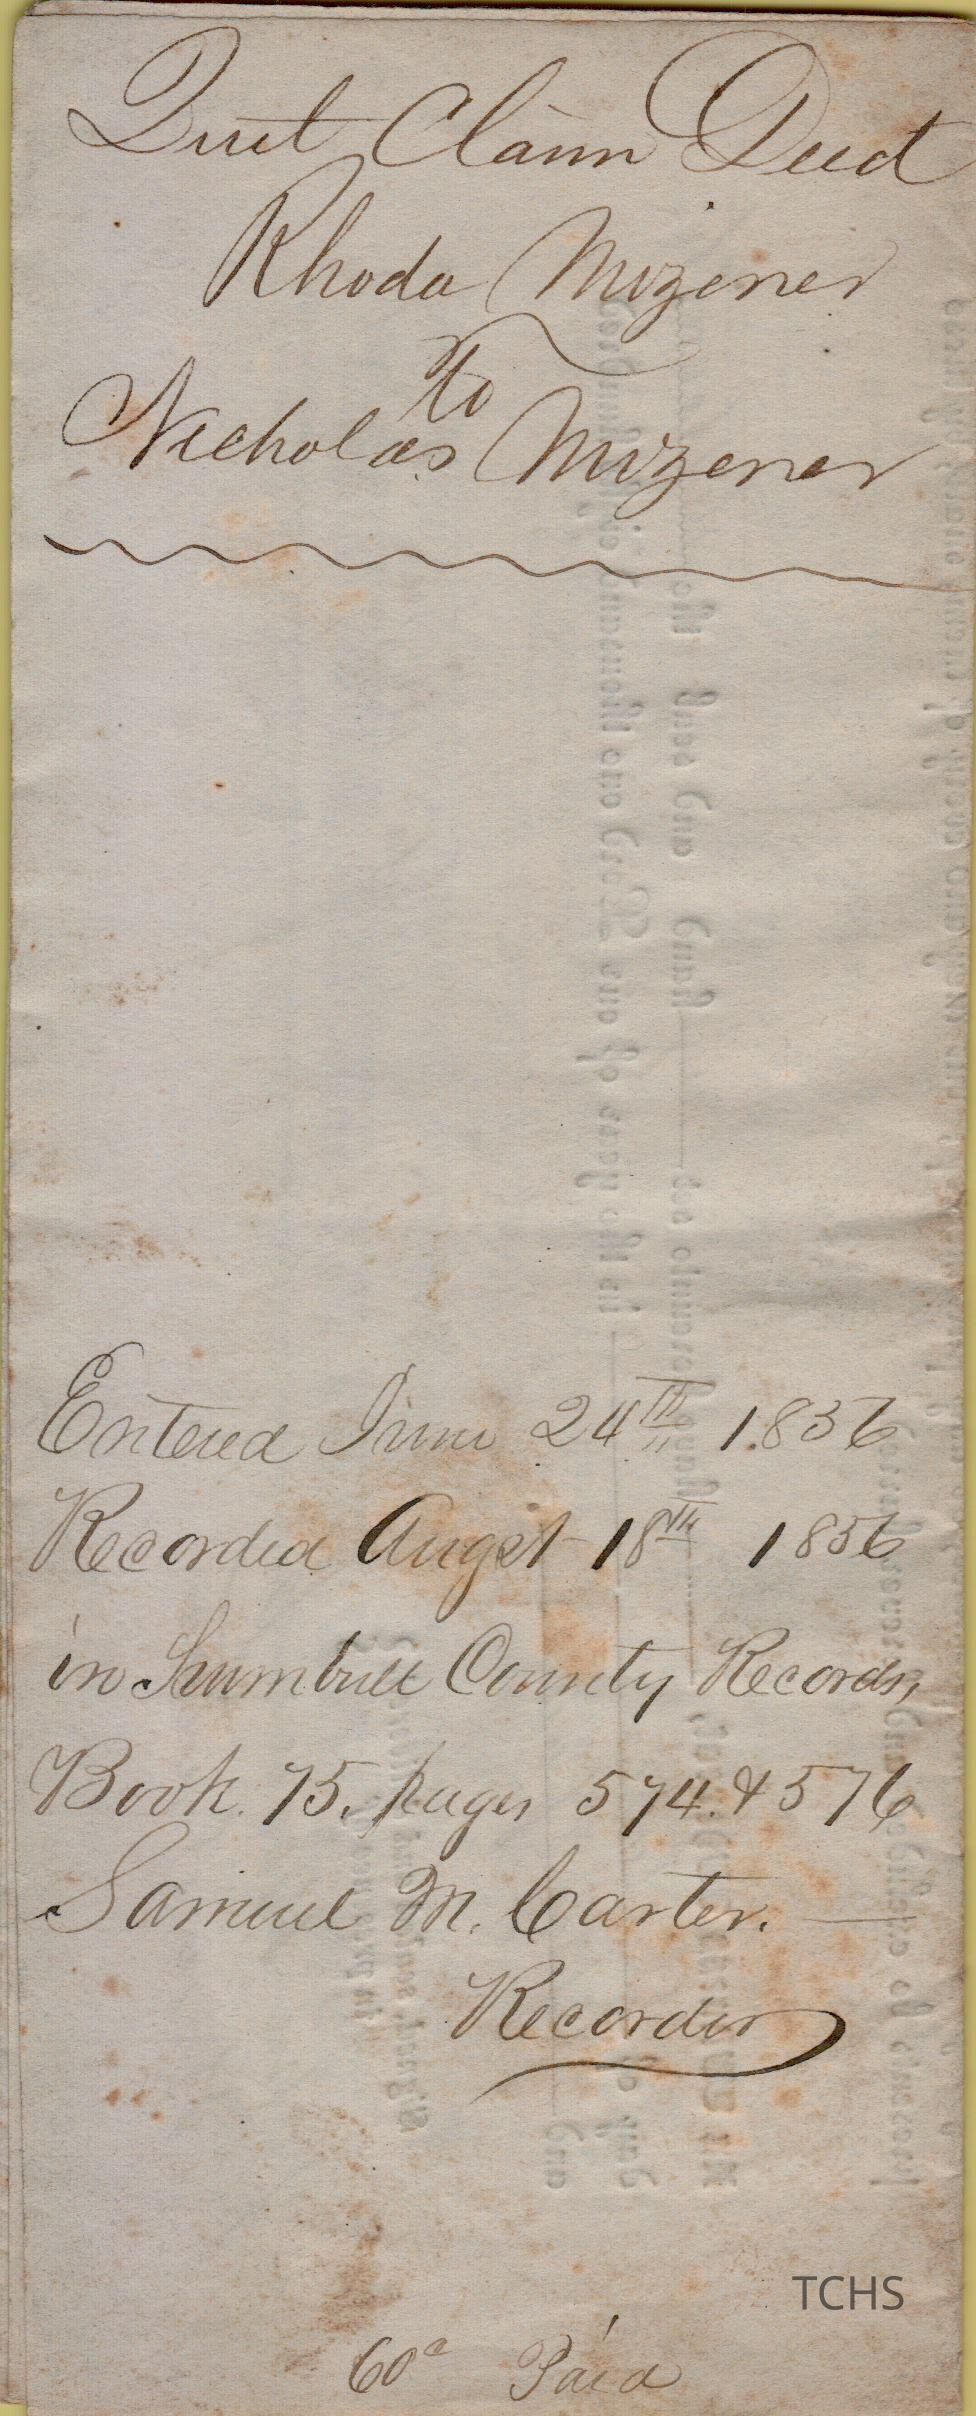 Quit Claim Deed
Rhoda Mizener
to
Nicholas Mizener
Entered June 24TH 1856
Recorded Augst 18TH 1856
in Trumbull County Records,
Book 75. Pages 574. & 576
Samuel M. Carter.
Recorder
TCHS
60c Paid